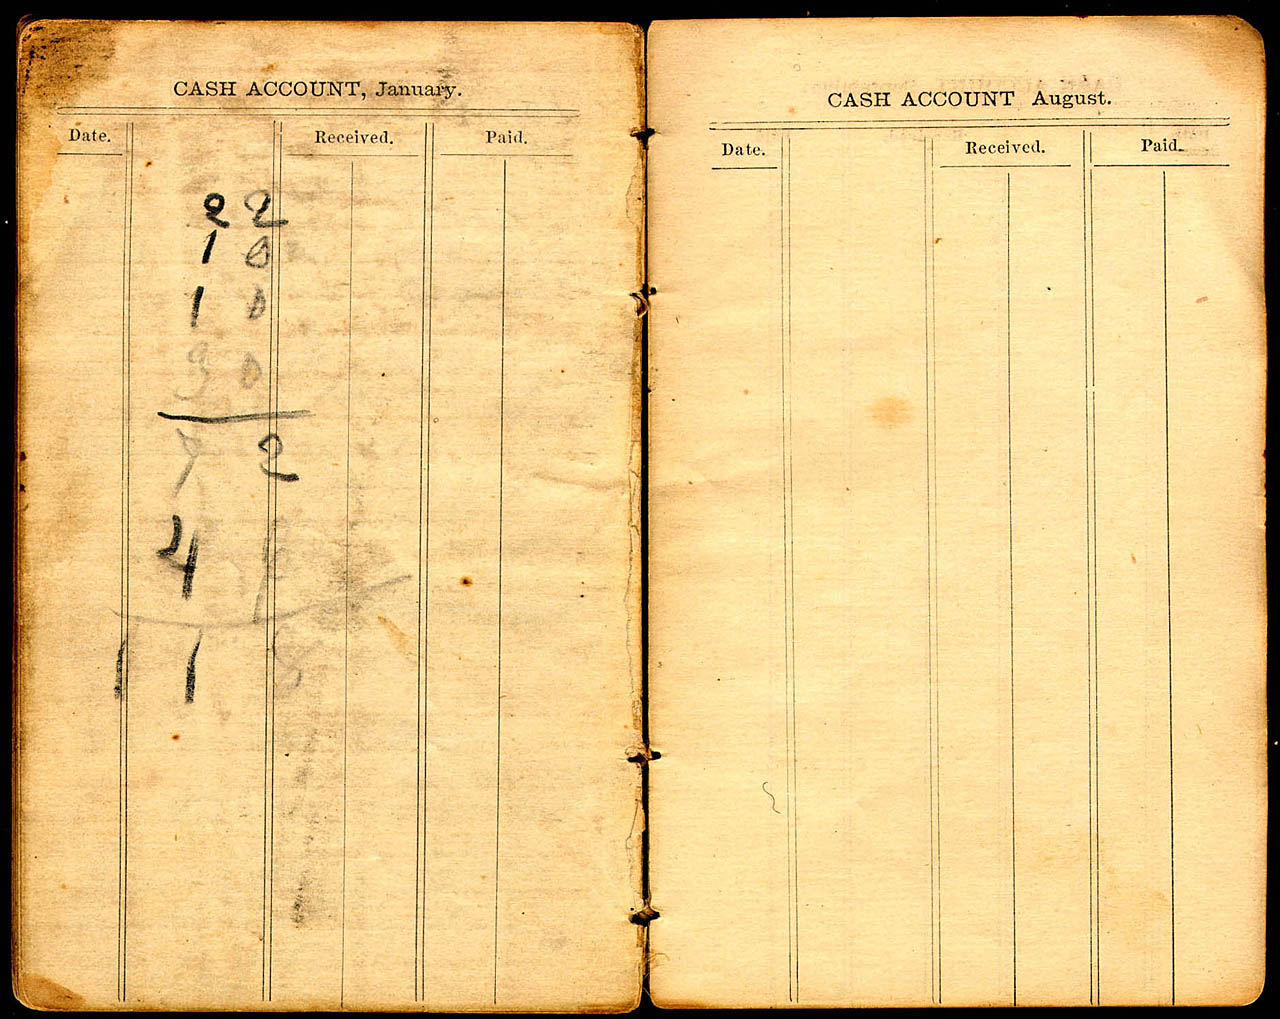 CASH ACCOUNT, January.
Date. Received. Paid.
22
10
10
30
72
4
11 8
CASH ACCOUNT August.
Date. Received. Paid.